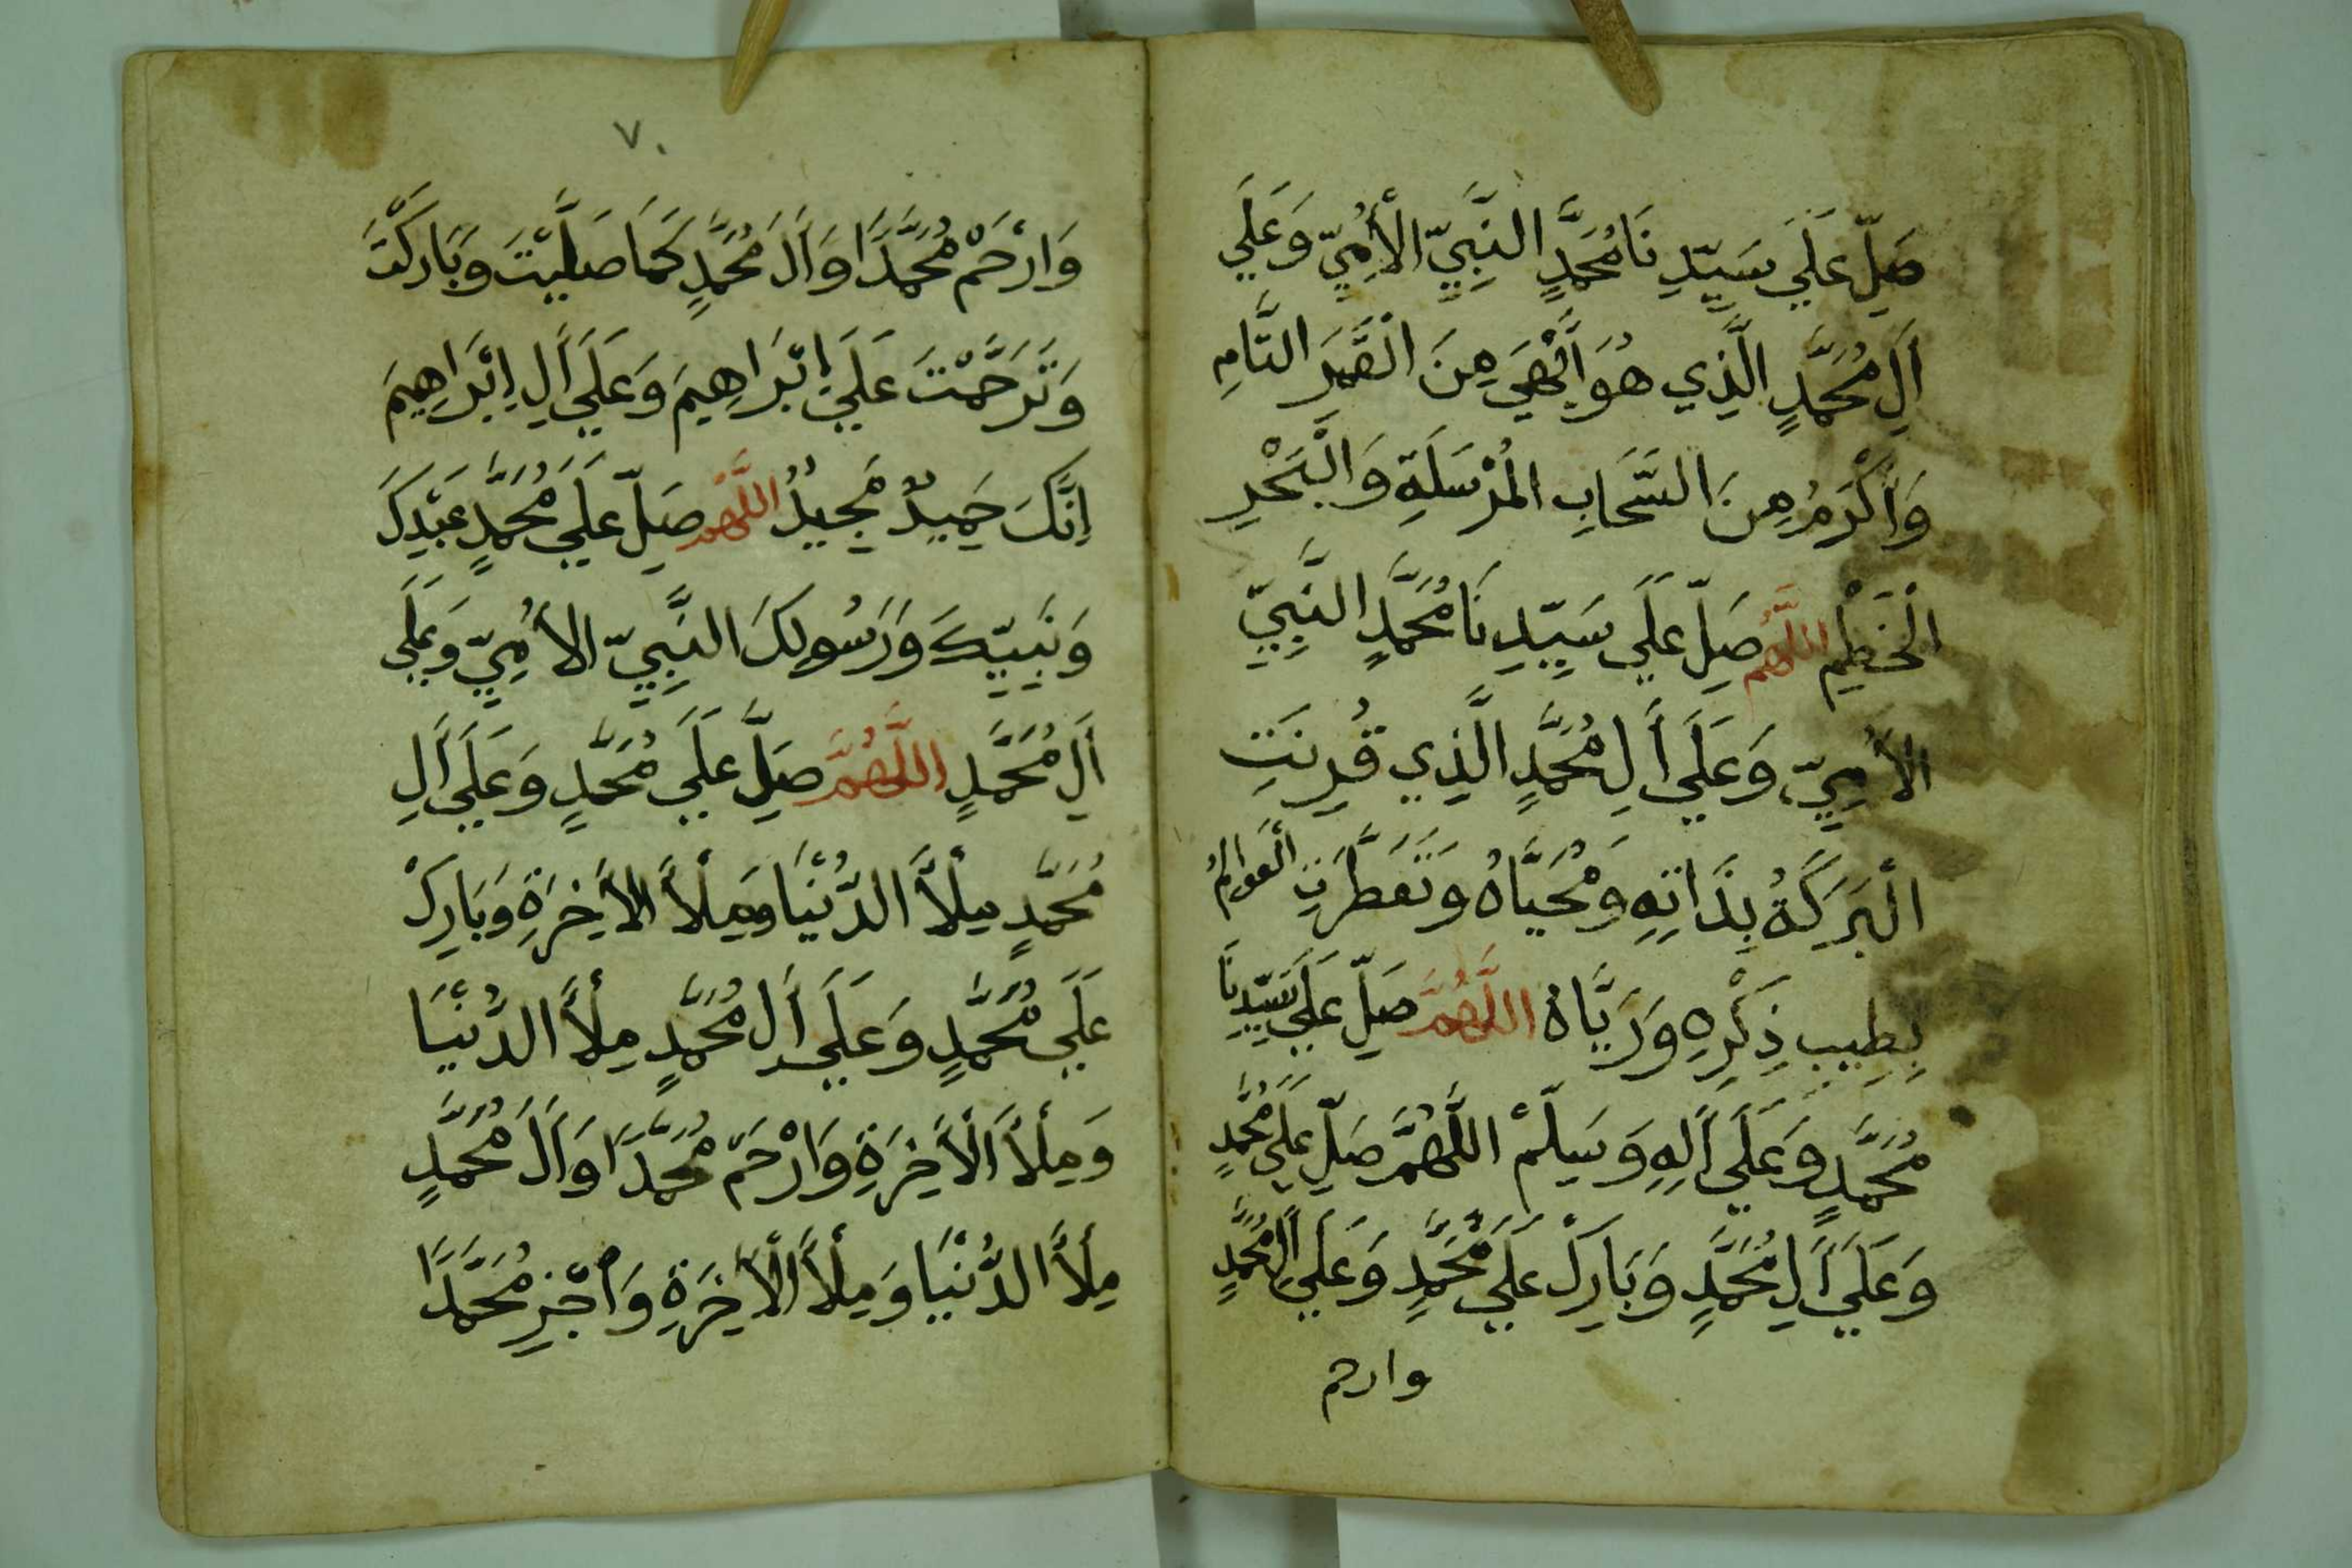 صَلِّ عَلَي سَيِّدِنَا مُحَمَّدٍ النَّبِيِّ الْأُمِيِّ وَعَلَي
أَلِ مُحَمَّدٍ الَّذِي هُوَ أَبْهَي مِنَ الْقَمَرِ التَّامِ
وَأَكْرَمُ مِنَ السَّحَابِ الْمُرْسَلَةِ وَالْبَحْرِ
الْخَطِمِ اللَّهُمَّ صَلِّ عَلَي سَيِّدِنَا مُحَمَّدٍ النَّبِيِّ
الأُمِيِّ وَعَلَي أَلِ مُحَمَّدٍ الَّذِي قُرِنَتِ
الْبَرَكَةُ بِذَاتِهِ وَمُحَيَّاهُ وَتَعَطَّرَتِ الْعَوَالِمُ
بِطِيبِ ذِكْرِهِ وَرَيَّاهُ اللَّهُمَّ صَلِّ عَلَي سَيِّدِنَا
مُحَمَّدٍ وَعَلَي أَلِهِ وَسَلِّمْ اللَّهُمَّ صَلِّ عَلَي مُحَمَّدٍ
وَعَلَي أَلِ مُحَمَّدٍ وَبَارِكْ عَلَي مُحَمَّدٍ وَعَلَي أَلِ مُحَمَّدٍ
وارحم
٧٠
وَارْحَمْ مُحَمَّدًا وَأَلَ مُحَمَّدٍ كَمَا صَلَّيْتَ وَبَارَكْتَ
وَتَرَحَّمْتَ عَلَي إِبْرَاهِيمَ وَعَلَي أَلِ إِبْرَاهِيمَ
إِنَّكَ حَمِيدٌ مَجِيدٌ اللَّهُمَّ صَلِّ عَلَي مُحَمَّدٍ عَبْدِكَ
وَنَبِيِّكَ وَرَسُولِكَ النَّبِيِّ الأُمِيِّ وَعَلَي
أَلِ مُحَمَّدٍ اللَّهُمَّ صَلِّ عَلَي مُحَمَّدٍ وَعَلَي أَلِ
مُحَمَّدٍ مِلْأَ الدُّنْيَا وَمِلْأَ الأَخِرَةِ وَبَارِكْ
عَلَي مُحَمَّدٍ وَعَلَي أَلِ مُحَمَّدٍ مِلْأَ الدُّنْيَا
وَمِلْأَ الْأَخِرَةِ وَارْحَمْ مُحَمَّدًا وَأَلَ مُحَمَّدٍ
مِلْأَ الدُّنْيَا وَمِلْأَ الْأَخِرَةِ وَاجْزِ مُحَمَّدًا